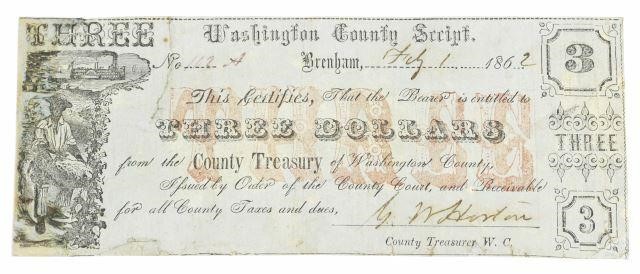 THREE Washington County Script. 3
No 112 A Brenham, Feby 1 1862
This Certifies, That the Bearer is entitled to
THREE DOLLARS THREE
from the County Treasury of Washington County,
Issued by Order of the County Court, and Receivable
for all County Taxes and dues, G W Horton 3
County Treasurer W. C.
THREE